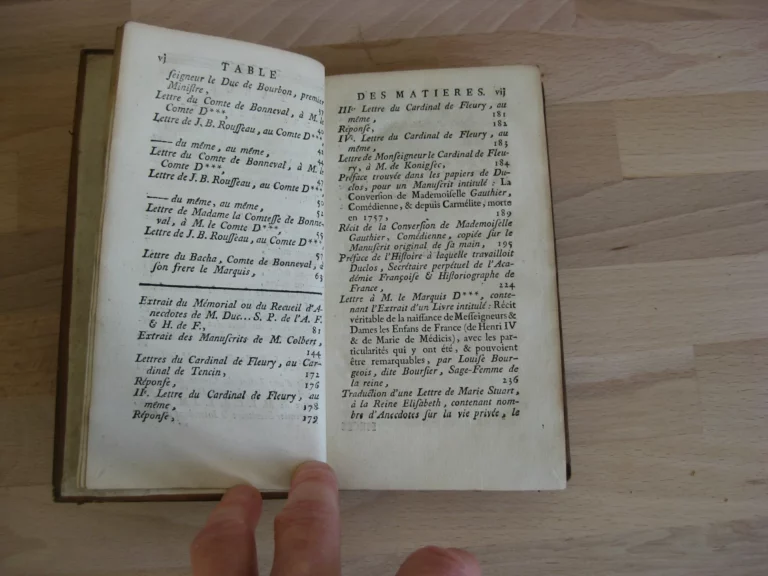 vj TABLE
ſeigneur le Duc de Bourbon, premier
Miniſtre,
Lettre du Comte de Bonneval, à M. le
Comte D***,
Lettre de J. B. Rouſſeau, au Comte D***,
—— du même, au même, 42
Lettre du Comte de Bonneval, à M. le
Comte D***, 44
Lettre de J. B. Rouſſeau, au Comte D***,
47
—— du même, au même, 50
Lettre de Madame la Comteſſe de Bonne-
val, à M. le Comte D***, 52
Lettre de J. B. Rouſſeau, au Comte D***,
57
Lettre du Bacha, Comte de Bonneval, à
ſon frere le Marquis, 63
Extrait du Mémorial ou du Recueil d'A-
necdotes de M. Duc... S. P. de l'A. F.
& H. de F., 81
Extrait des Manuſcrits de M. Colbert,
144
Lettres du Cardinal de Fleury, au Car-
dinal de Tencin, 172
Réponſe, 176
IIe. Lettre du Cardinal de Fleury, au
même, 178
Réponſe, 179
DES MATIERES. vij
IIIe. Lettre du Cardinal de Fleury, au
même, 181
Réponſe, 182
IVe. Lettre du Cardinal de Fleury, au
même, 183
Lettre de Monſeigneur le Cardinal de Fleu-
ry, à M. de Konigſec, 184
Préface trouvée dans les papiers de Du-
clos, pour un Manuſcrit intitulé : La
Converſion de Mademoiſelle Gauthier,
Comédienne, & depuis Carmélite, morte
en 1757, 189
Récit de la Converſion de Mademoiſelle
Gauthier, Comédienne, copiée ſur le
Manuſcrit original de ſa main, 195
Préface de l'Hiſtoire à laquelle travailloit
Duclos, Secrétaire perpétuel de l'Aca-
démie Françoiſe & Hiſtoriographe de
France, 224
Lettre à M. le Marquis D***, conte-
nant l'Extrait d'un Livre intitulé : Récit
véritable de la naiſſance de Meſſeigneurs &
Dames les Enfans de France (de Henri IV
& de Marie de Médicis), avec les par-
ticularités qui y ont été, & pouvoient
être remarquables, par Louiſe Bour-
geois, dite Bourſier, Sage-Femme de
la reine, 236
Traduction d'une Lettre de Marie Stuart,
à la Reine Eliſabeth, contenant nom-
bre d'Anecdotes ſur la vie privée, le